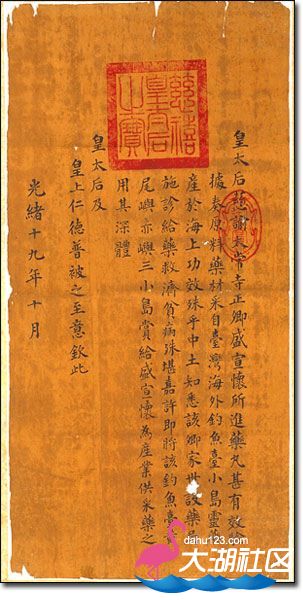 慈禧
皇后
之寶
皇太后慈諭太常寺正卿盛宣懷所進藥丸甚有效
據奏原料藥材采自臺灣海外釣魚臺小島靈藥
產於海上功效殊乎中土知悉該卿家世設藥局
施診給藥救濟貧病殊堪嘉許即將該釣魚臺黃
尾嶼赤嶼三小島賞給盛宣懷為產業供采藥之
用其深體
皇太后及
皇上仁德普被之至意欽此
光緒十九年十月
dahu123.com
大湖社区